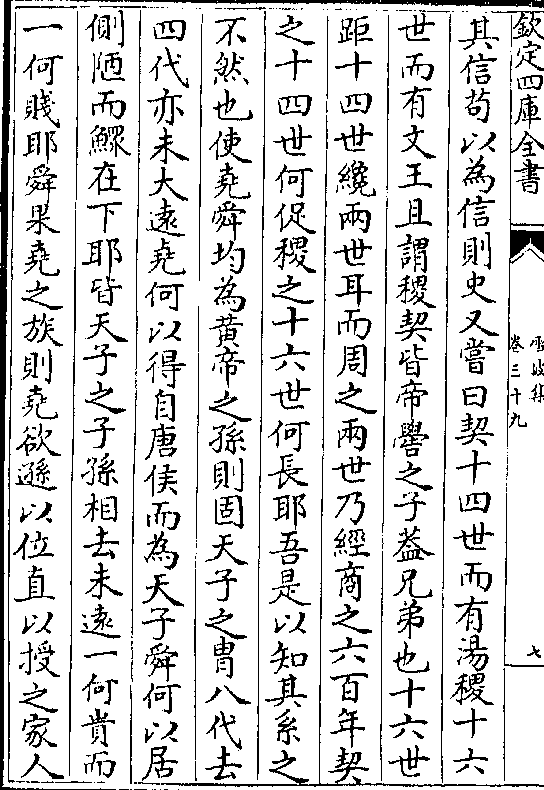 欽定四庫全書
卷三十九
七
其信苟以為信則史又嘗曰契十四世而有湯稷十六
世而有文王且謂稷契皆帝嚳之子葢兄弟也十六世
距十四世纔兩世耳而周之兩世乃經商之六百年契
之十四世何促稷之十六世何長耶吾是以知其系之
不然也使堯舜均為黃帝之孫則固天子之胄八代去
四代亦未大遠堯何以得自唐侯而為天子舜何以居
側陋而鰥在下耶皆天子之子孫相去未遠一何貴而
一何賤耶舜果堯之族則堯欲遜以位直以授之家人